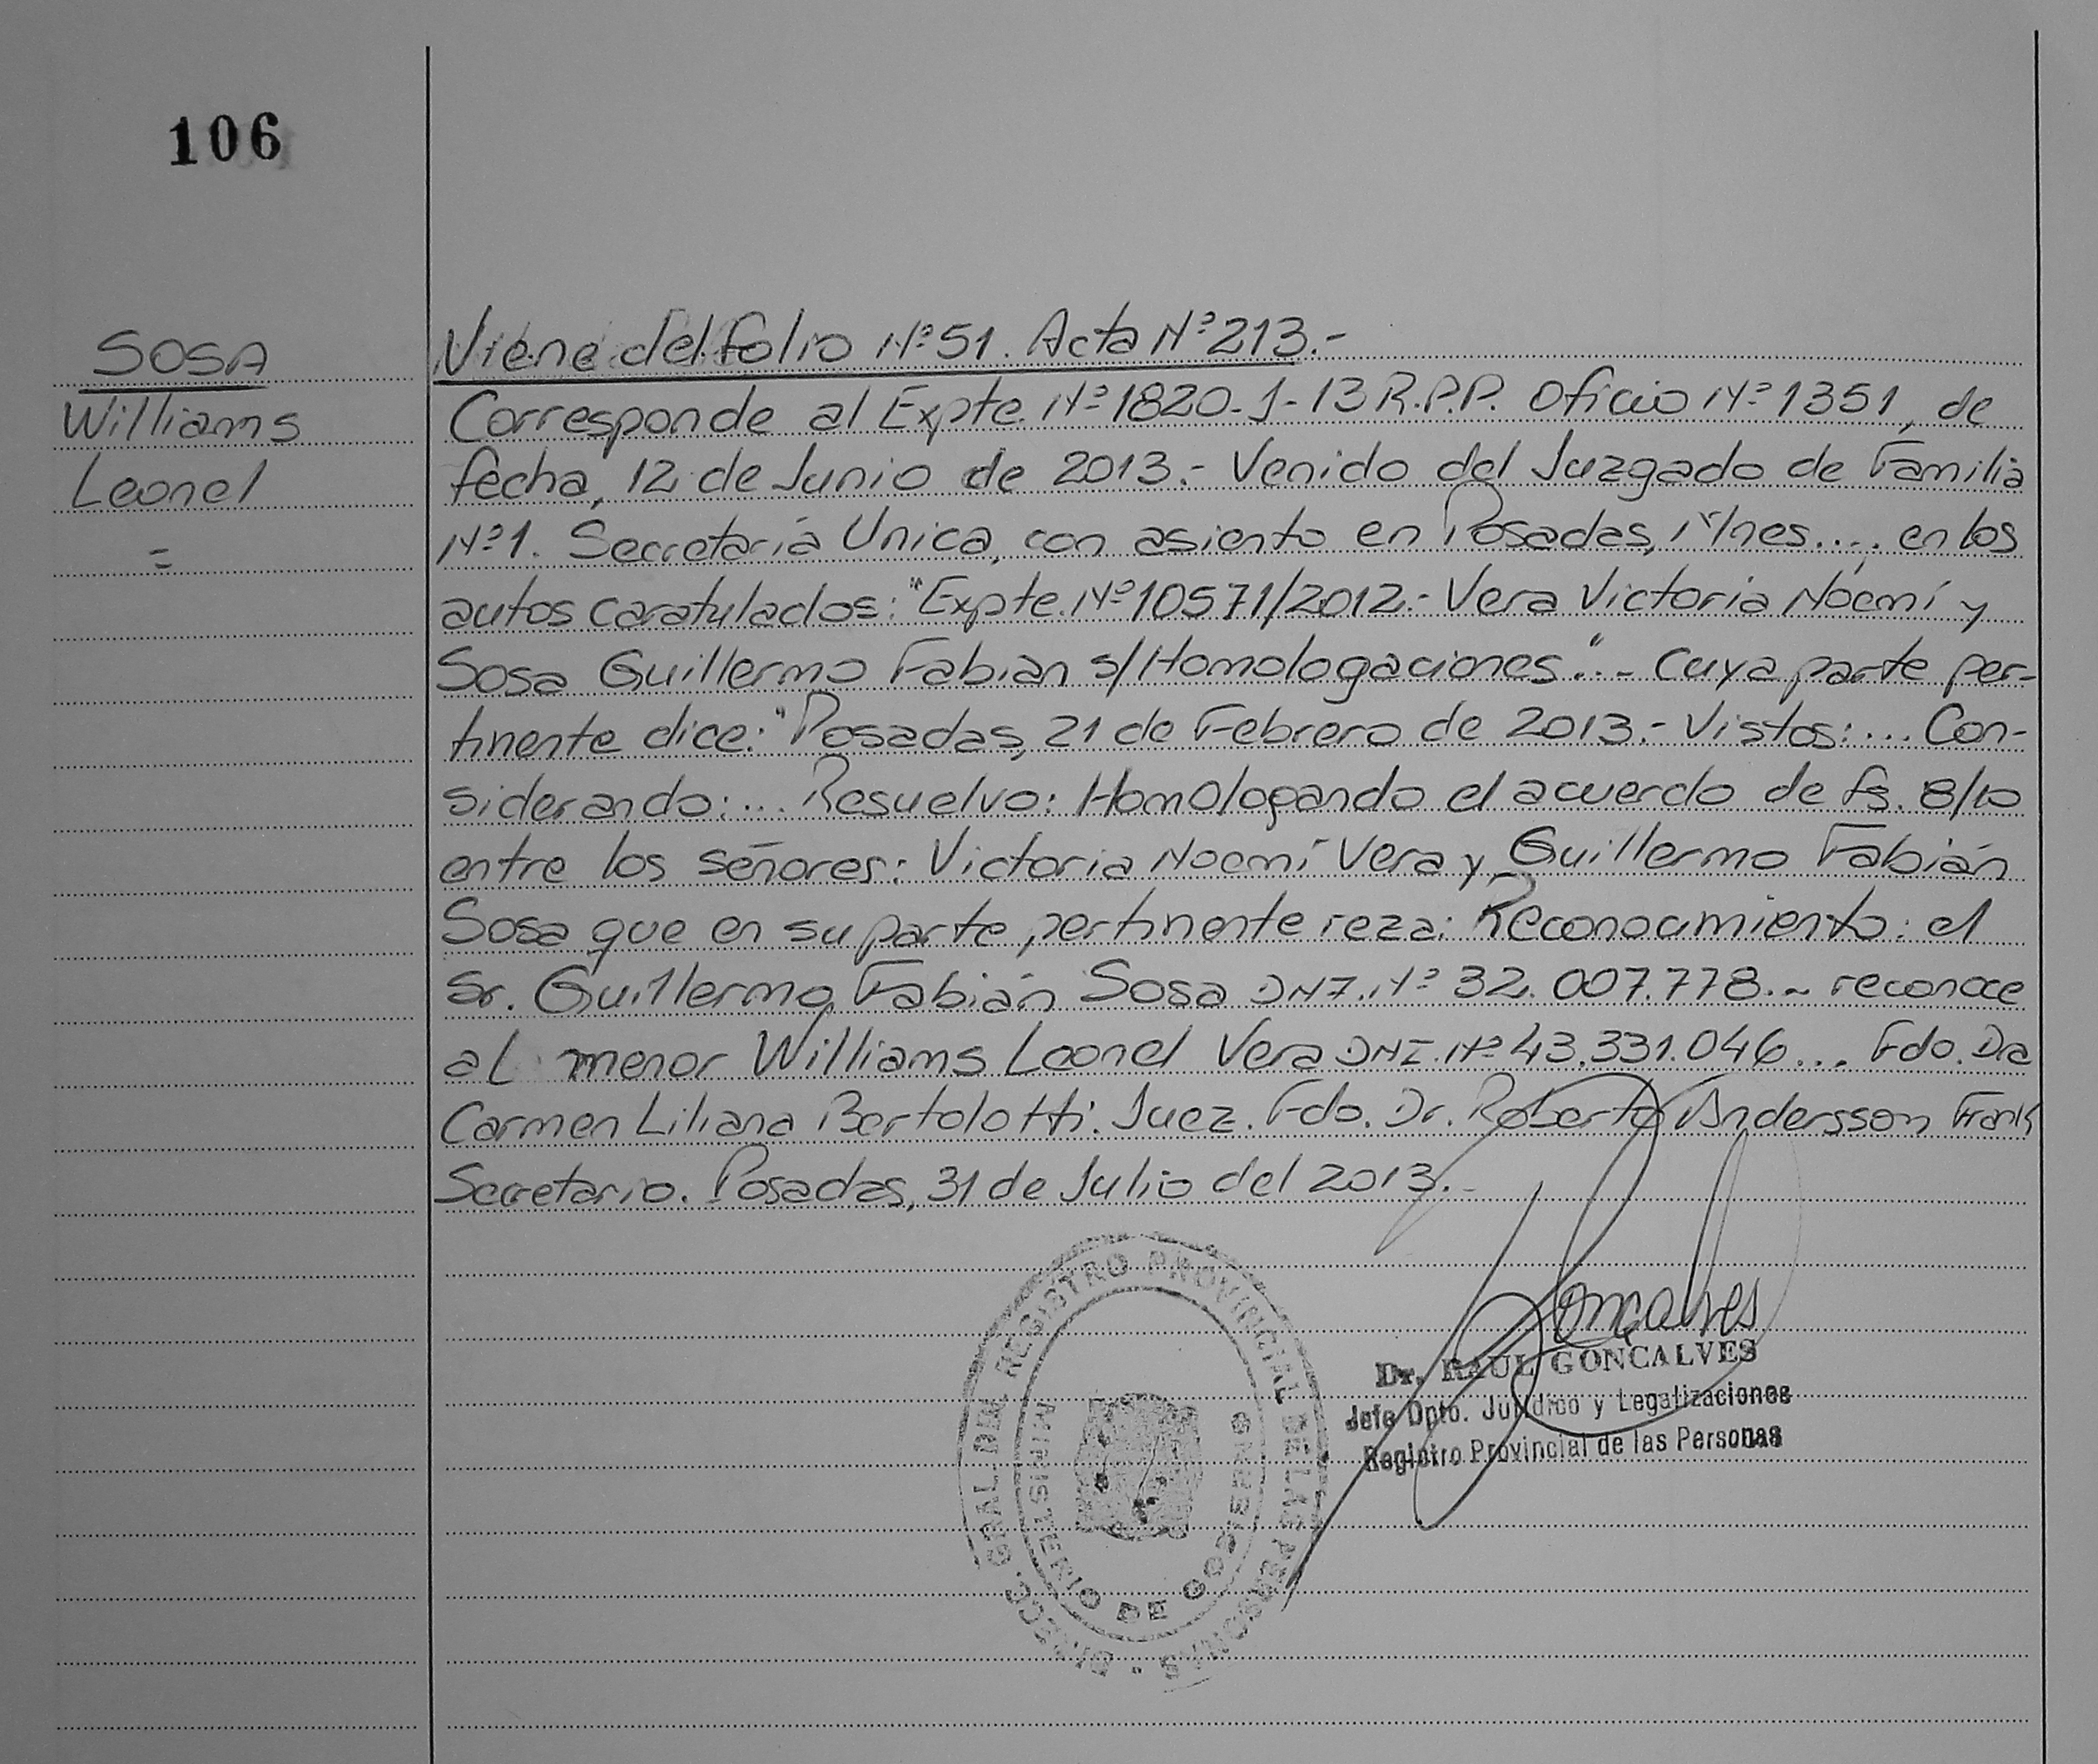 106
SOSA
Williams
Leonel
=
Viene del folio Nº 51. Acta Nº 213.-
Corresponde al Expte. Nº 1820-J-13 R.P.P. Oficio Nº 1351, de
fecha, 12 de Junio de 2013.- Venido del Juzgado de Familia
Nº 1. Secretaría Unica, con asiento en Posadas, Mnes...., en los
autos caratulados: "Expte. Nº 10571/2012.- Vera Victoria Noemí y
Sosa Guillermo Fabian s/Homologaciones".- Cuya parte per-
tinente dice: "Posadas, 21 de Febrero de 2013.- Vistos:... Con-
siderando:... Resuelvo: Homologando el acuerdo de fs. 8/10
entre los señores: Victoria Noemí Vera y Guillermo Fabián
Sosa que en su parte pertinente reza: Reconocimiento: el
Sr. Guillermo Fabián Sosa DNI. Nº 32.007.778.- reconoce
al menor Williams Leonel Vera DNI. Nº 43.331.046... Fdo. Dra
Carmen Liliana Bertolotti. Juez. Fdo. Dr. Roberto Andersson Frank
Secretario. Posadas, 31 de Julio del 2013.-
Goncalves
Dr. RAUL GONCALVES
Jefe Dpto. Jurídico y Legalizaciones
Registro Provincial de las Personas
GRAL. DEL REGISTRO PROVINCIAL DE LAS PERSONAS
MINISTERIO DE GOBIERNO